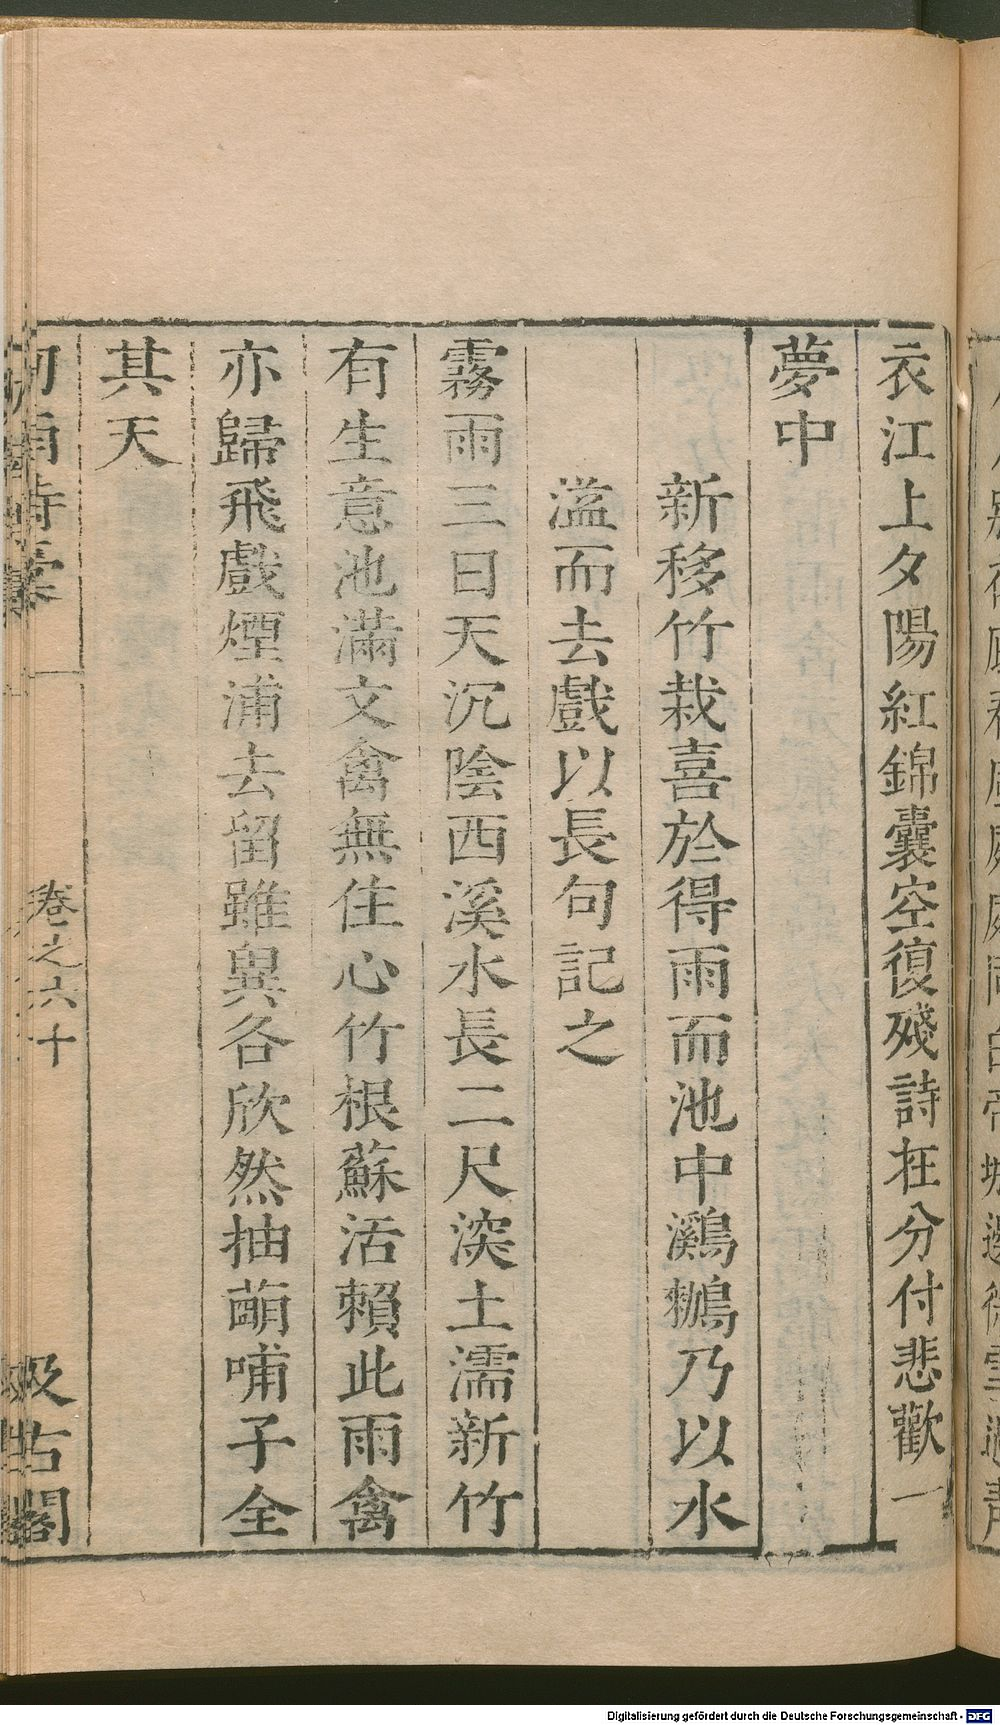 衣江上夕陽紅錦囊空復殘詩在分付悲歡一
夢中
新移竹栽喜於得雨而池中鸂鶒乃以水
溢而去戲以長句記之
霧雨三日天沉陰西溪水長二尺深土濡新竹
有生意池滿文禽無住心竹根蘇活賴此雨禽
亦歸飛戲煙浦去留雖異各欣然抽萌哺子全
其天
卷之六十
汲古閣
Digitalisierung gefördert durch die Deutsche Forschungsgemeinschaft - DFG